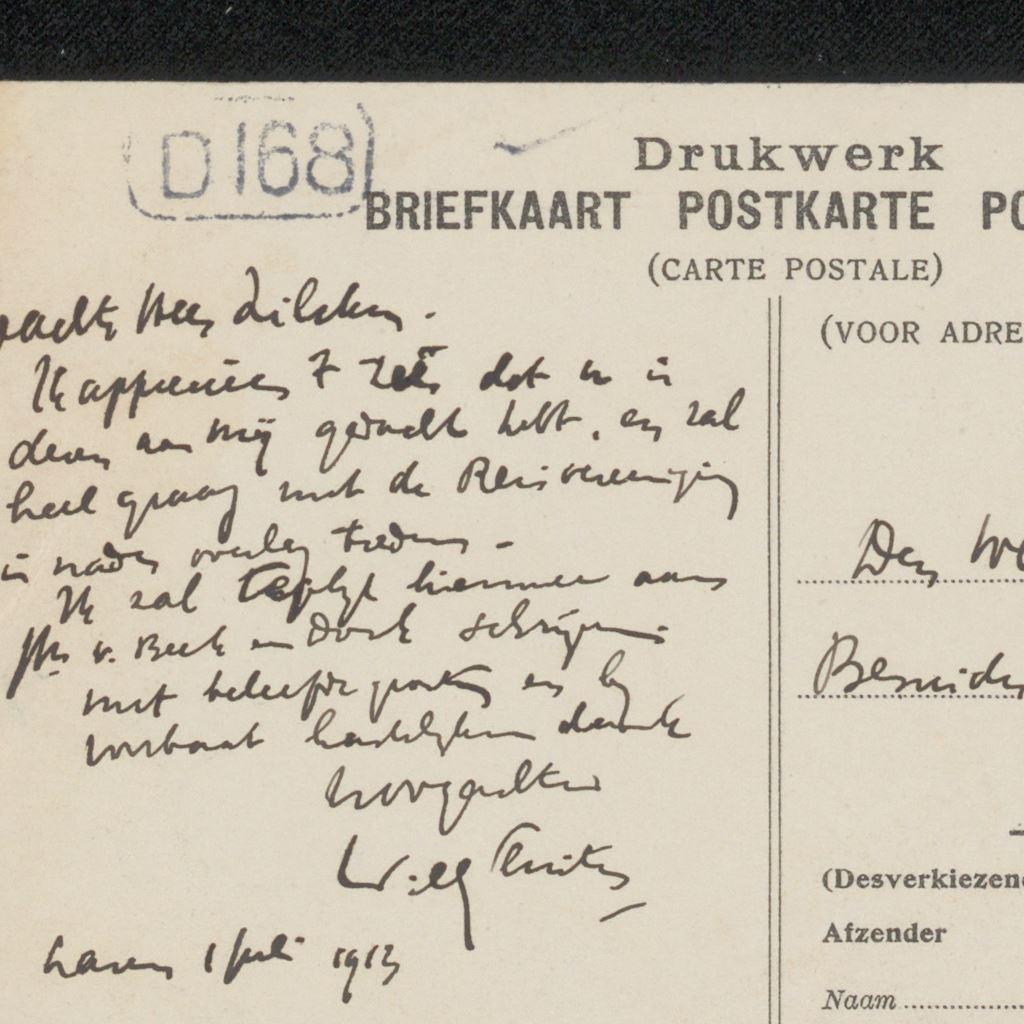 D168
Drukwerk
BRIEFKAART POSTKARTE PO
(CARTE POSTALE)
(VOOR ADRE
achte Heer Zilcken.
Ik apprecieer 't zéér dat u in
dezen aan mij gedacht hebt, en zal
heel graag met de Reisvereeniging
in nader overleg treden.
Ik zal tegelijk hiermee aan
Mr. v. Beek en Donk schrijven.
met beleefde groeten en bij
voorbaat hartelijken dank
hoogachtend
Willy Sluiter
Laren 1 juli 1913
Den We
Bezuiden
(Desverkiezend
Afzender
Naam